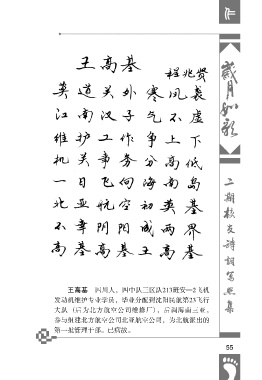 作
岁月如歌
王高基
程兆贤
莫道关外寒风袭
江南汉子气不虚
维护工作争上下
机关事务分高低
一日飞向海南岛
北亚航空初奠基
不幸阴阳成两界
高基高基王高基
王高基 四川人,四中队三区队213班安—2飞机
发动机维护专业学员,毕业分配到沈阳民航第23飞行
大队(后为北方航空公司维修厂),后到海南三亚,
参与组建北方航空公司北亚航空公司,为北航派出的
第一批管理干部。已病故。
二期校友诗词写照集
55